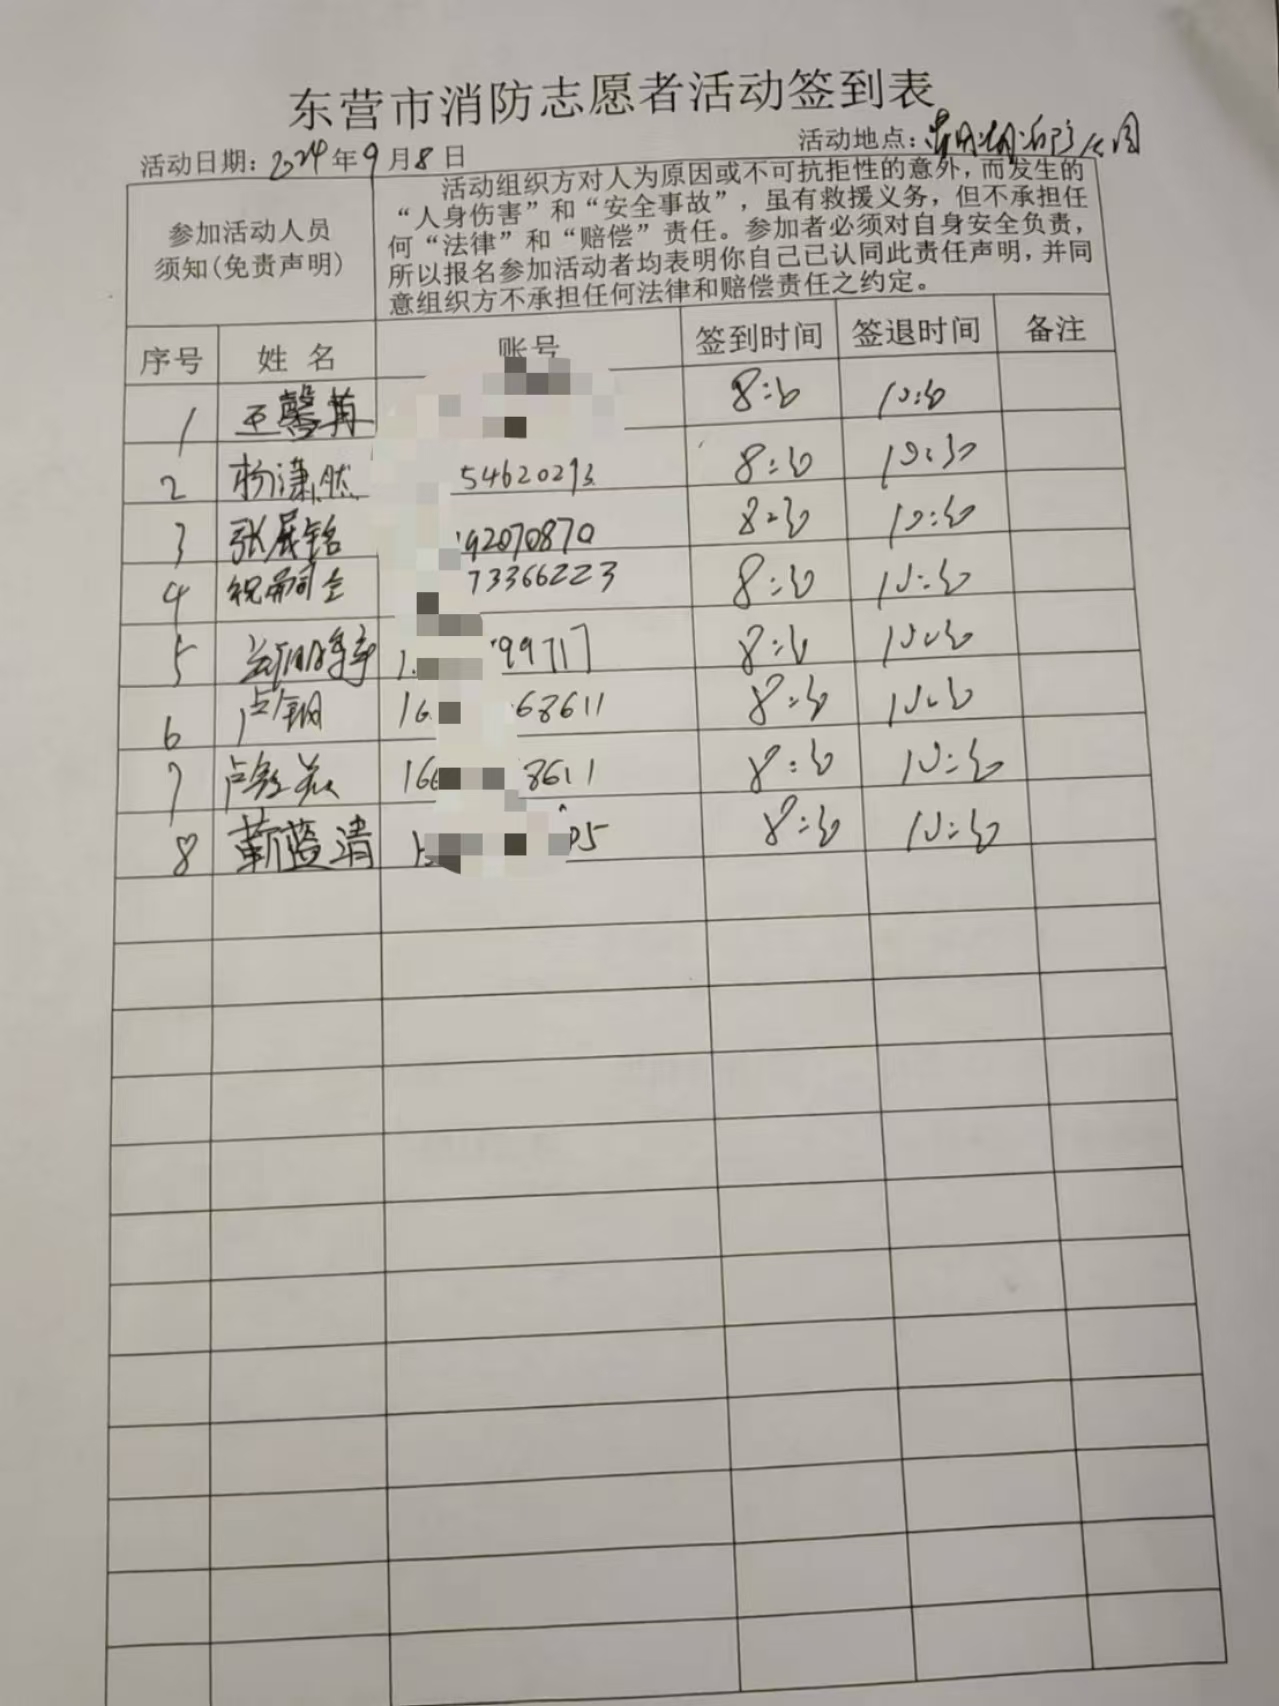 东营市消防志愿者活动签到表
活动日期: 2024年9月8日 活动地点: 消防公园
参加活动人员
须知(免责声明)
活动组织方对人为原因或不可抗拒性的意外,而发生的
“人身伤害”和“安全事故”,虽有救援义务,但不承担任
何“法律”和“赔偿”责任。参加者必须对自身安全负责,
所以报名参加活动者均表明你自己已认同此责任声明,并同
意组织方不承担任何法律和赔偿责任之约定。
序号 姓名 账号 签到时间 签退时间 备注
1 王馨苒 8:30 10:30
2 杨潇然 54620293 8:30 10:30
3 张展铭 92070870 8:30 10:30
4 祝嗣全 73366223 8:30 10:30
5 99717 8:30 10:30
6 卢钢 16 68611 8:30 10:30
7 166 8611 8:30 10:30
8 靳蓝清 05 8:30 10:30